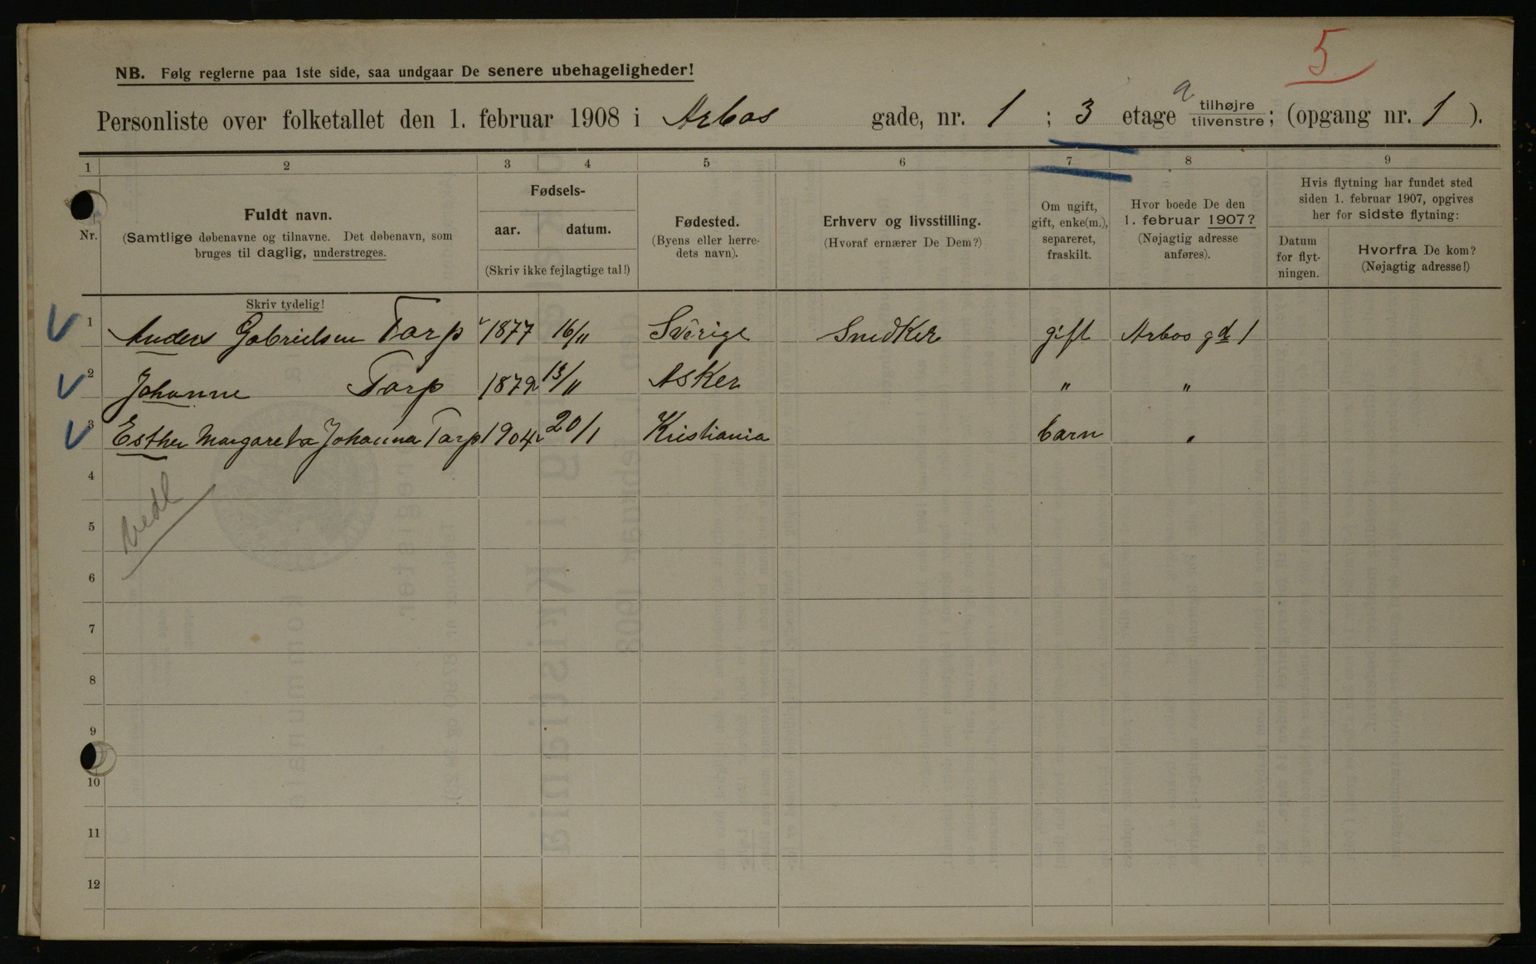 5
NB. Følg reglerne paa 1ste side, saa undgaar De senere ubehageligheder!
Personliste over folketallet den 1. februar 1908 i Arbos gade, nr. 1 ; 3 etage tilhøjre tilvenstre; (opgang nr. 1 ).
1 2 3 4 5 6 7 8 9
Nr.
Fuldt navn.
(Samtlige døbenavne og tilnavne. Det døbenavn, som
bruges til daglig, understreges.
Fødsels-
aar. datum.
(Skriv ikke fejlagtige tal!)
Fødested.
(Byens eller herre-
dets navn).
Erhverv og livsstilling.
(Hvoraf ernærer De Dem?)
Om ugift,
gift, enke(m.),
separeret,
fraskilt.
Hvor boede De den
1. februar 1907?
(Nøjagtig adresse
anføres).
Hvis flytning har fundet sted
siden 1. februar 1907, opgives
her for sidste flytning:
Datum
for flyt-
ningen.
Hvorfra De kom?
(Nøjagtig adresse!)
Skriv tydelig!
1 Anders Gabrielsen Tarp 1877 16/11 Sverige Snedker gift Arbos gd 1
2 Johanne Tarp 1872 13/11 Asker " "
3 Esther Margareta Johanna Tarp 1904 20/1 Kristiania barn "
4
5
6
7
8
9
10
11
12